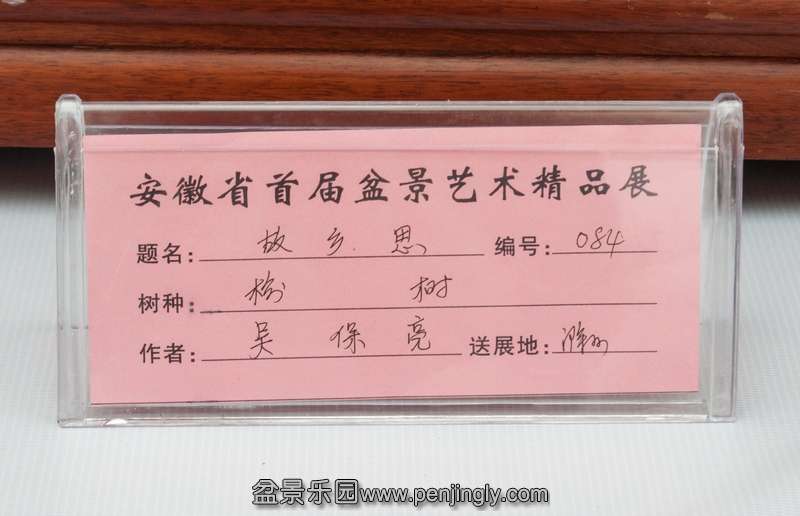 安徽省首届盆景艺术精品展
题名: 故乡思 编号: 084
树种: 榆树
作者: 吴保亮 送展地: 滁州
盆景乐园www.penjingly.com